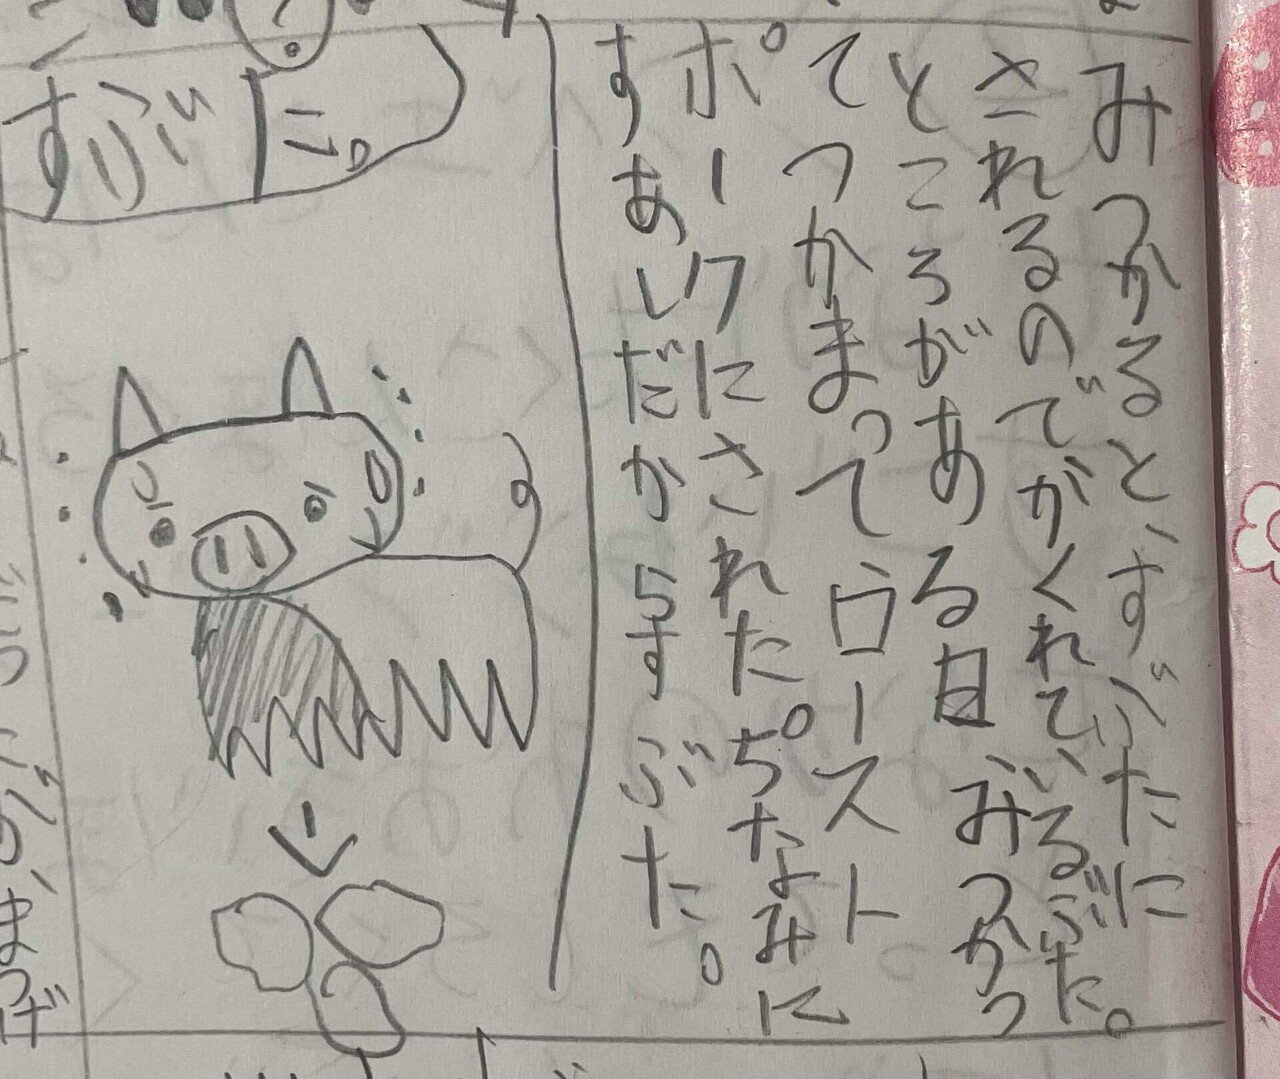 みつかると、すぶたに
されるのでかくれているぶた。
ところがある日みつかっ
てつかまってロースト
ポークにされた。ちなみに
すあしだからすぶた。